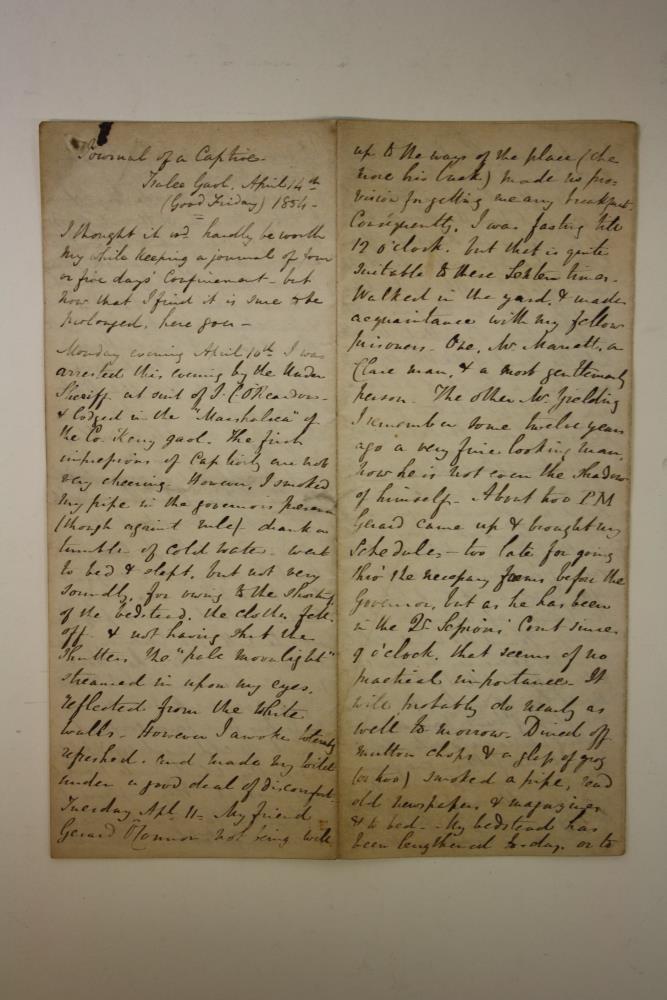 Journal of a Captive
Tralee Gaol. April 14th
(Good Friday) 1854 -
I thought it wd. hardly be worth
my while keeping a journal of four
or five days' confinement - but
now that I find it is sure to be
prolonged, here goes -
Monday evening April 10th I was
arrested this evening by the Under
Sheriff at suit of
& lodged in the "Marshalsea" of
the Co. Kerry gaol. The first
impressions of captivity are not
very cheering. However, I smoked
my pipe in the governor's presence
(though against rule) - drank a
tumbler of cold water - went
to bed & slept, but not very
soundly, for owing to the shortness
of the bedstead, the clothes fell
off - & not having shut the
shutters the "pale moonlight"
streamed in upon my eyes,
reflected from the white
walls - However I awoke tolerably
refreshed. and made my toilet
under a good deal of discomfort -
Tuesday Apl. 11 - My friend
Gerard O'Connor not being well
up to the ways of the place (the
more his luck) made no pro-
vision for getting me any breakfast.
Consequently, I was fasting till
12 o'clock. but that is quite
suitable to these Lenten times.
Walked in the yard, & made
acquaintance with my fellow
prisoners - One, Mr. a
Clare man, & a most gentlemanly
person - The other Mr.
I remember some twelve years
ago a very fine looking man,
now he is not even the shadow
of himself - About two P.M
Gerard came up & brought my
Schedules - too late for going
thro' the necessary forms before the
Governor, but as he has been
in the Qr. Sessions Court since
9 o'clock, that seems of no
practical importance. It
will probably do nearly as
well to morrow. Dined off
mutton chops & a glass of grog
(or two) smoked a pipe, read
old newspapers & magazines
& to bed - My bedstead has
been lengthened to-day, or to